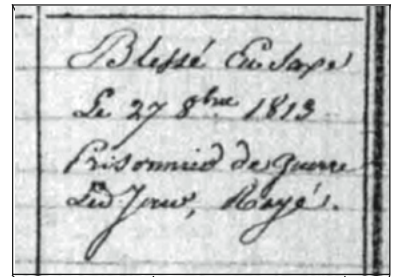 Blessé En Saxe
Le 27 8bre 1813
Prisonnier de guerre
Led Jour, Rayé.